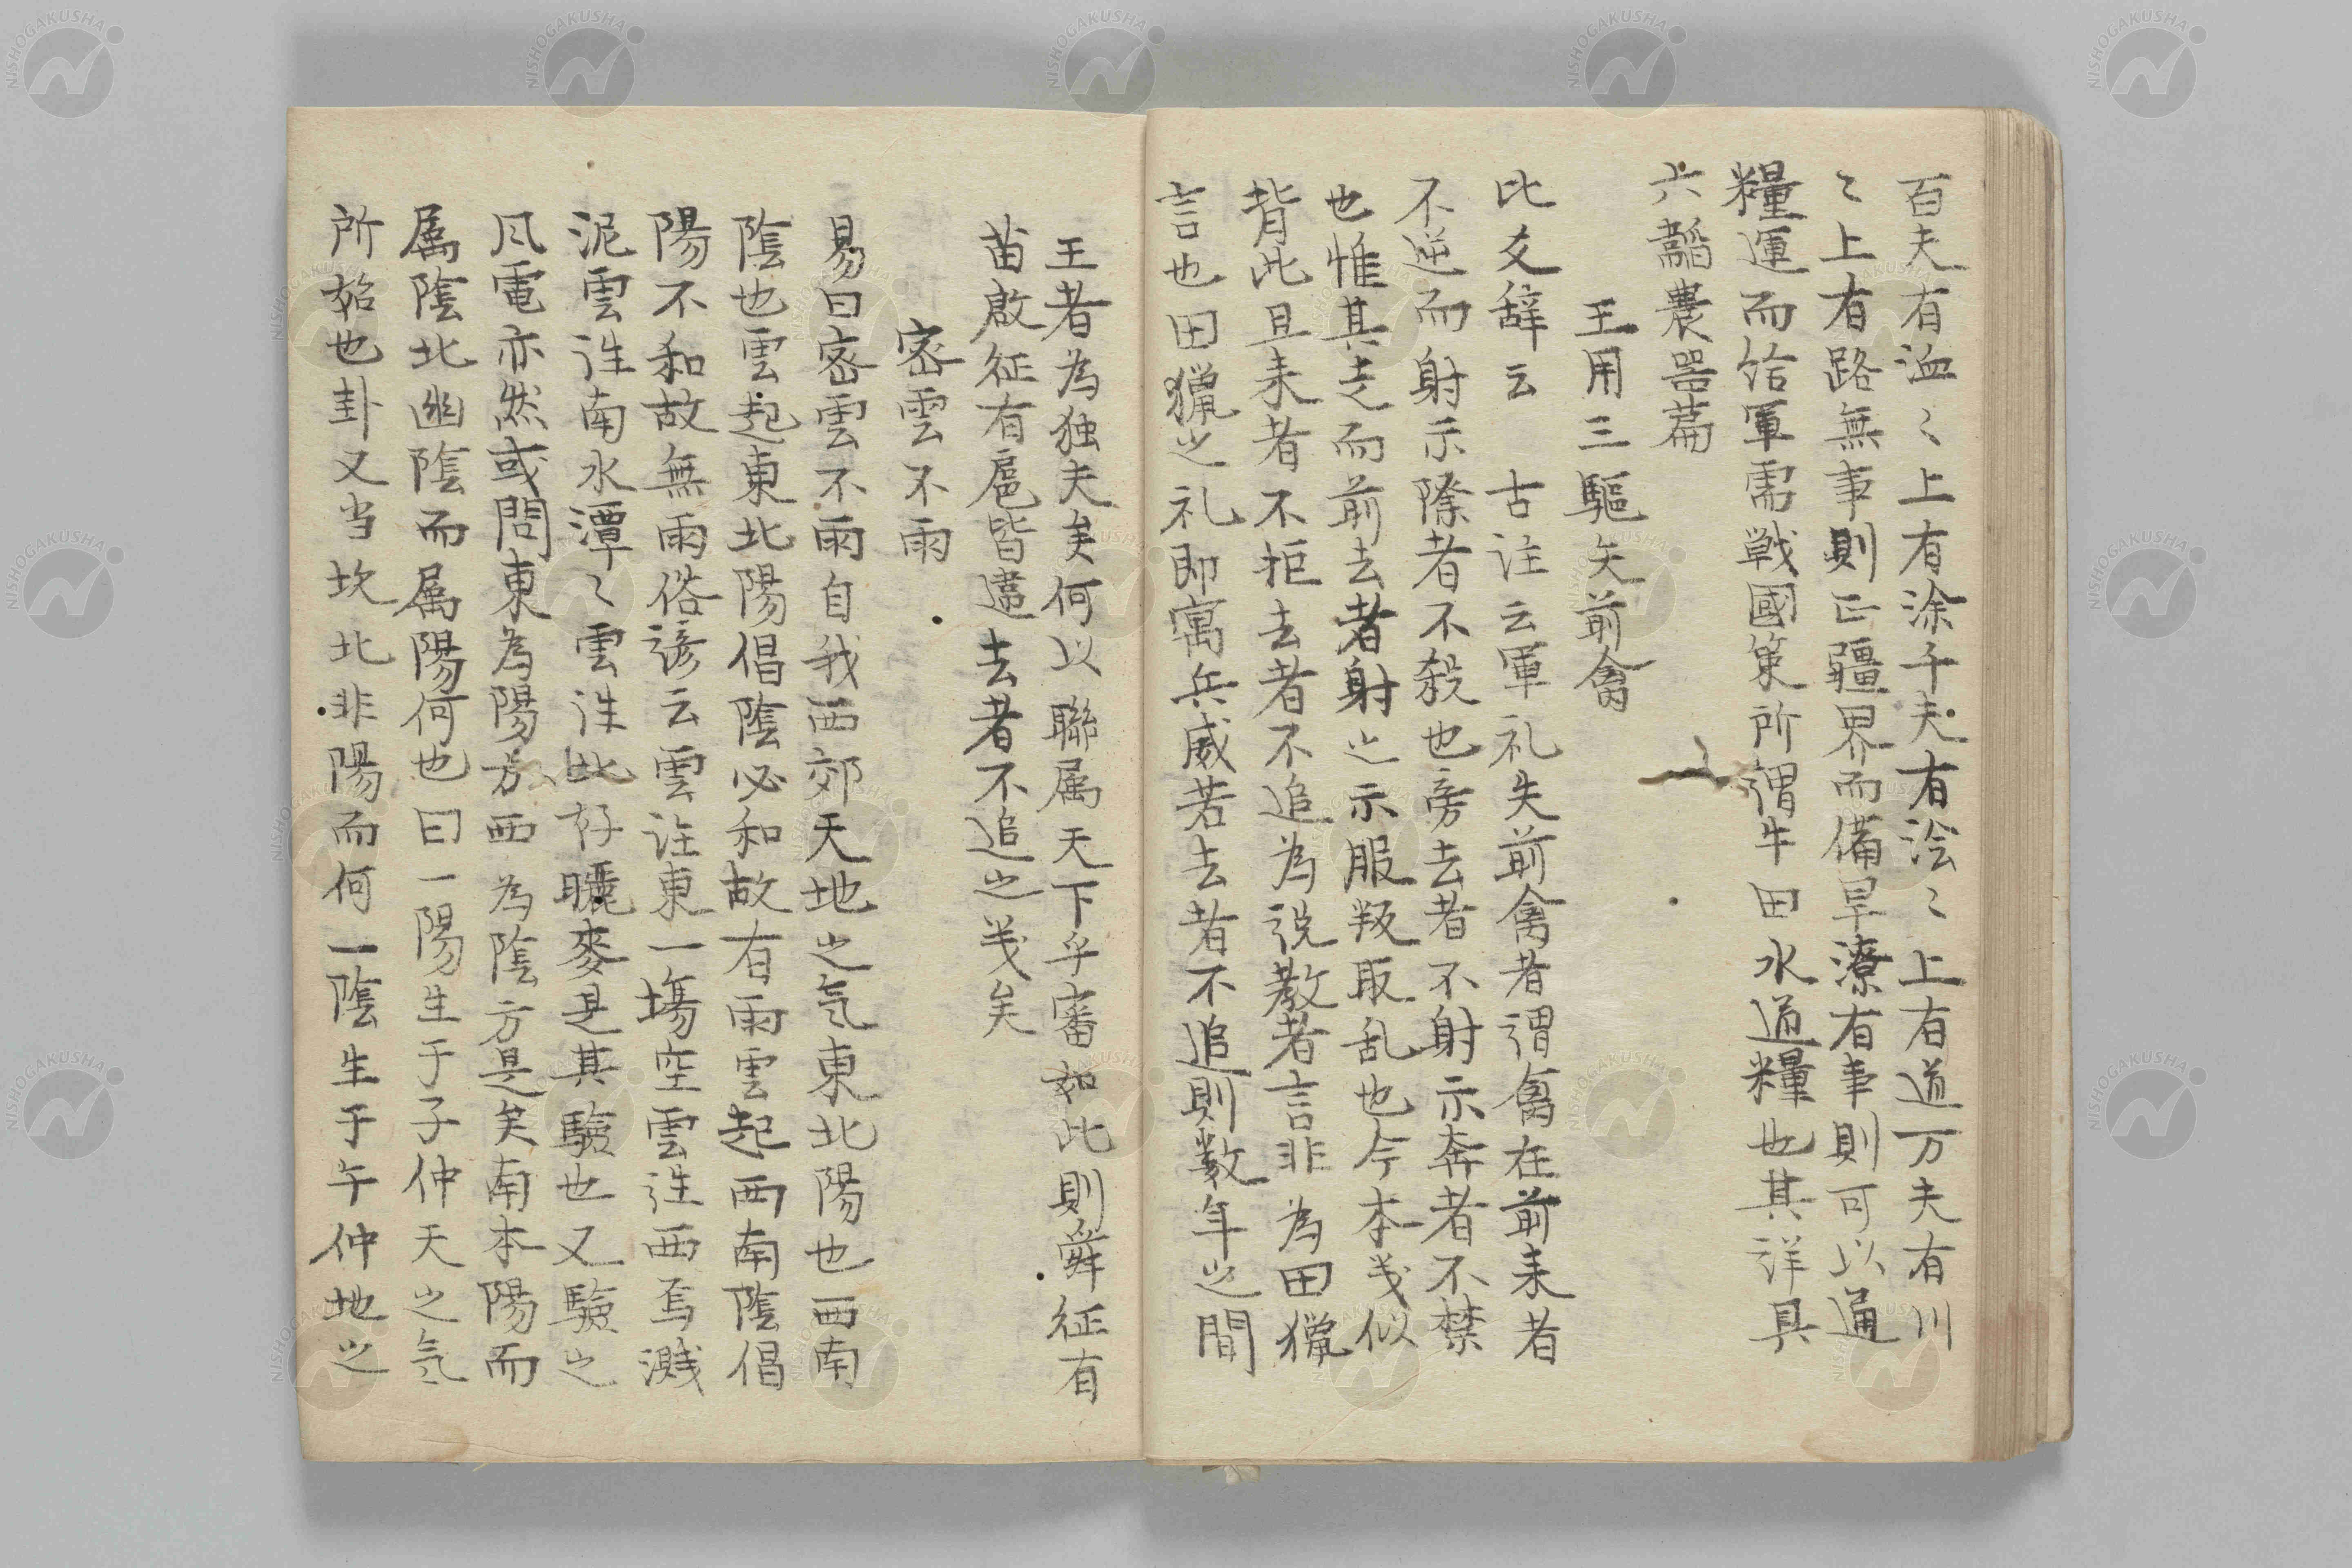 百夫有洫〻上有涂千夫有澮〻上有道万夫有川
〻上有路無事則正疆界而備旱潦有事則可以通
糧運而給軍需戦國策所謂牛田水道糧也其詳具
六韜農器篇
王用三驅失前禽
比爻辞云 古注云軍礼失前禽者謂禽在前来者
不逆而射示降者不殺也旁去者不射示奔者不禁
也惟其走而前去者射之示服叛取乱也今本义似
背此且来者不拒去者不追為説教者言非為田獵
言也田獵之礼即寓兵威若去者不追則数年之間
王者為独夫矣何以聯属天下乎審如此則舜征有
苗啟征有扈皆違去者不追之义矣
密雲不雨
易曰密雲不雨自我西郊天地之気東北陽也西南
陰也雲起東北陽倡陰必和故有雨雲起西南陰倡
陽不和故無雨俗諺云雲往東一塲空雲往西馬濺
泥雲往南水潭〻雲往北好曬麥是其驗也又驗之
风電亦然或問東為陽方西為陰方是矣南本陽而
属陰北幽陰而属陽何也曰一陽生于子仲天之気
所始也卦又当坎北非陽而何一陰生于午仲地之
NISHOGAKUSHA